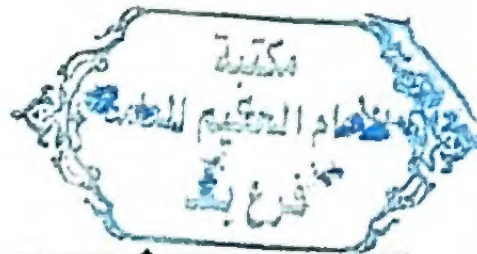 مكتبة
الامام الحكيم العامة
فرع بلد